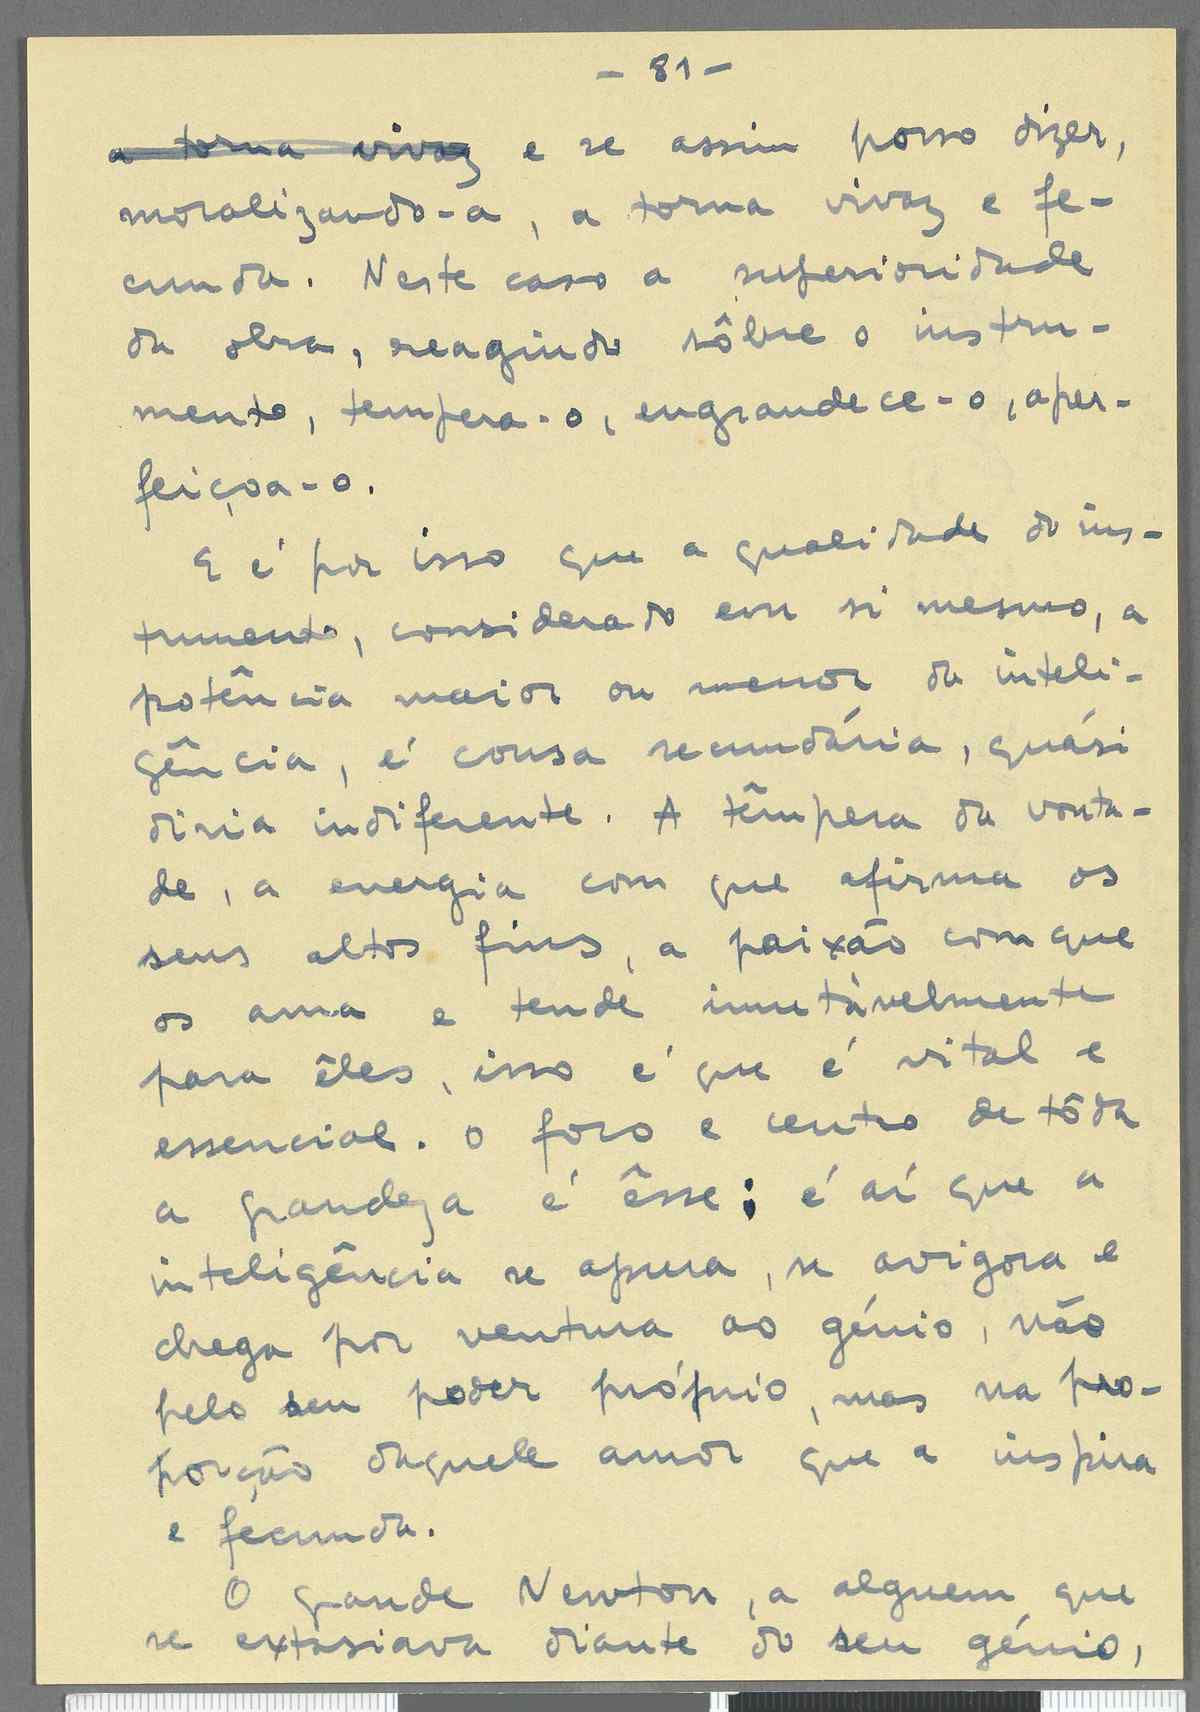 - 81 -
a torna vivaz e se assim posso dizer,
moralizando-a, a torna vivaz e fe-
cunda. Neste caso a superioridade
da obra, reagindo sôbre o instru-
mento, tempera-o, engrandece-o, aper-
feiçoa-o.
E é por isso que a qualidade do ins-
trumento, considerado em si mesmo, a
potência maior ou menor da inteli-
gência, é cousa secundária, quási
diria indiferente. A têmpera da vonta-
de, a energia com que afirma os
seus altos fins, a paixão com que
os ama e tende imutàvelmente
para êles, isso é que é vital e
essencial. O foco e centro de tôda
a grandeza é êsse; é aí que a
inteligência se apura, se avigora e
chega por ventura ao génio, não
pelo seu poder próprio, mas na pro-
porção daquele amor que a inspira
e fecunda.
O grande Newton, a alguem que
se extasiava diante do seu génio,